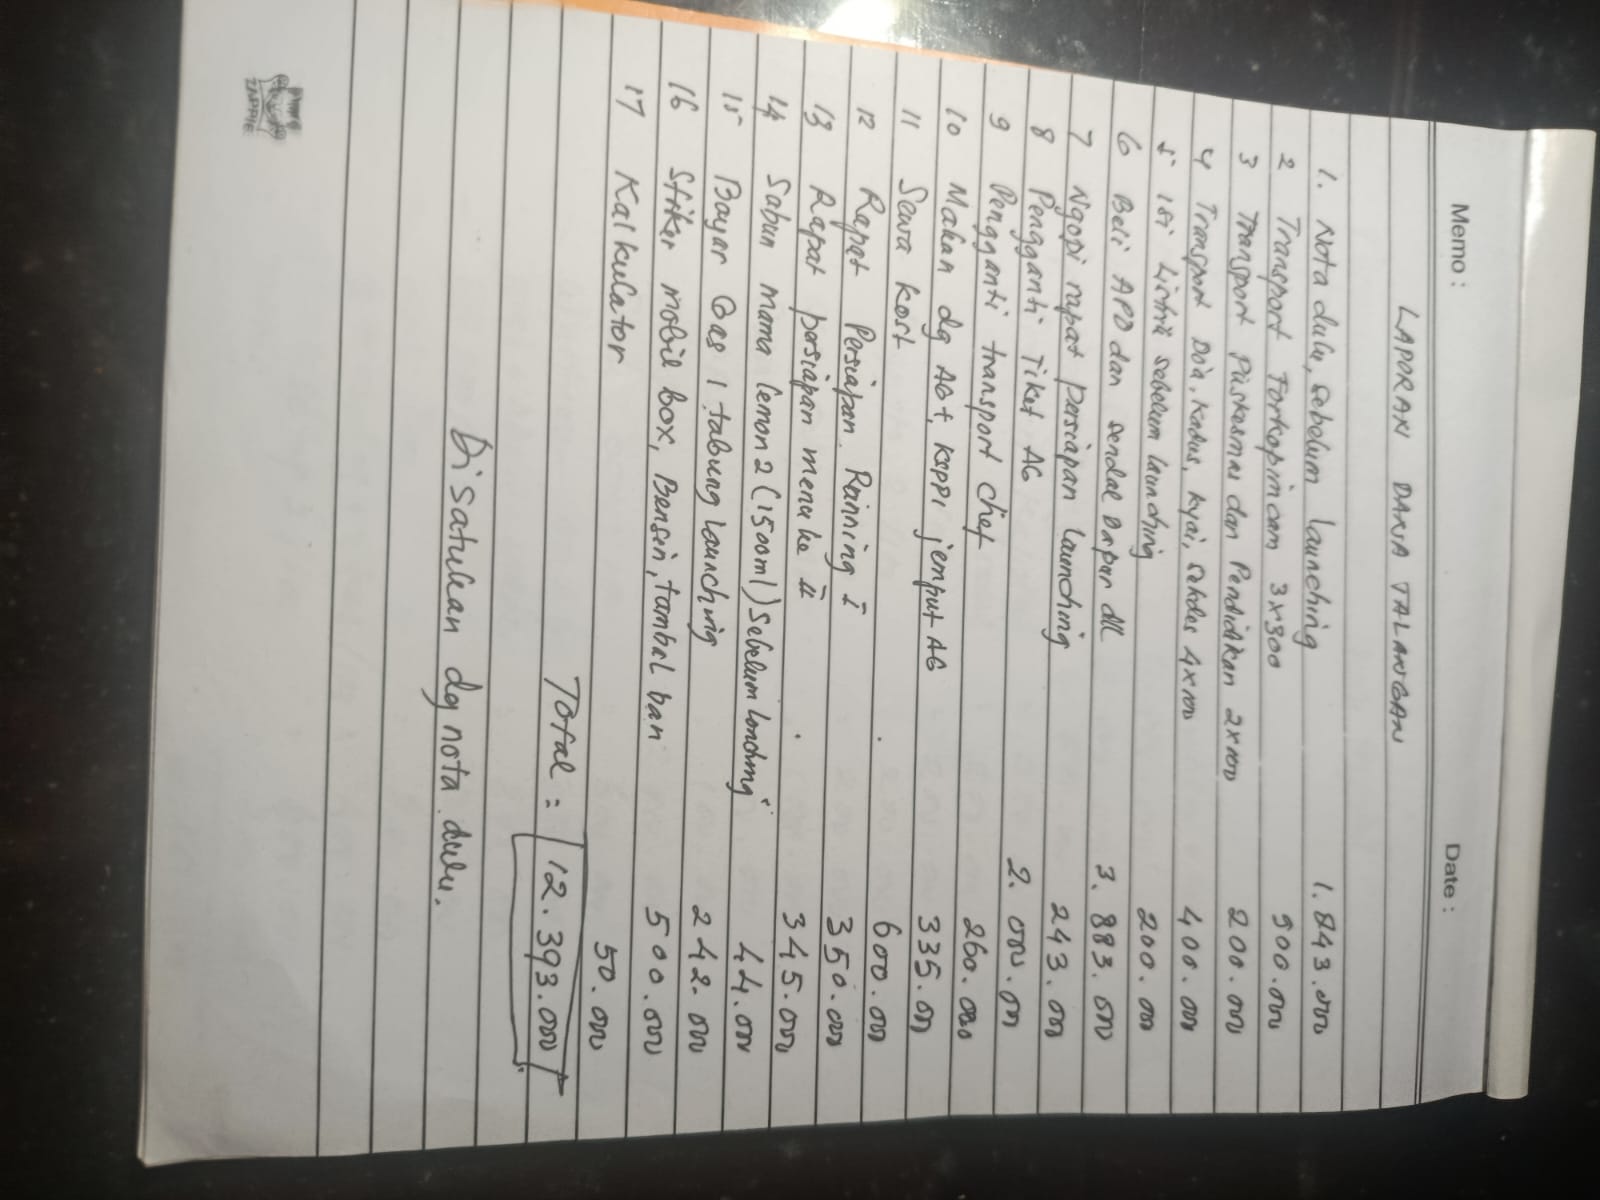 Memo :
Date :
LAPORAN DANA TALANGAN
1. Nota dulu, sebelum launching 1.843.000
2 Transport Forkopimcam 3x300 900.000
3 Transport Puskesmas dan Pendidikan 2x100 200.000
4 Transport Do'a, Kadus, Kyai, Sekdes 4x100 400.000
5 isi Listrik sebelum launching 200.000
6 Beli APD dan Sendal Dapur dll 3.883.000
7 Ngopi rapat persiapan launching 243.000
8 Pengganti Tiket AG 2.000.000
9 Pengganti transport chef 260.000
10 Makan dg AG+, KSPPI jemput AG 335.000
11 Sewa kost 600.000
12 Rapat Persiapan Running I 350.000
13 Rapat persiapan menu ke II 345.000
14 Sabun mama lemon 2 (1500ml) Sebelum londing 44.000
15 Bayar Gas 1 tabung launching 242.000
16 Stiker mobil box, Bensin, tambal ban 500.000
17 Kalkulator 50.000
Total = 12.393.000
Disatukan dg nota dulu.
ZAPPIE